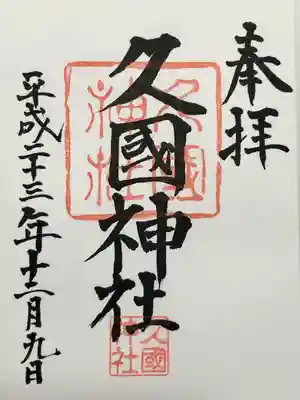 奉拝
久國神社
久國
神社
久國
神社
平成二十三年十二月九日